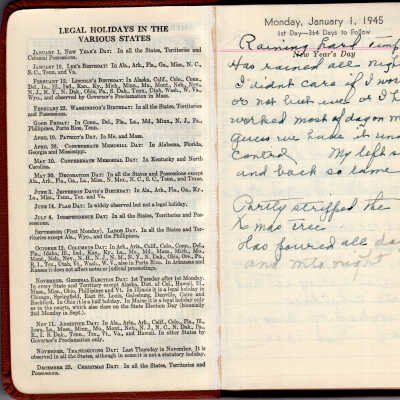 LEGAL HOLIDAYS IN THE
VARIOUS STATES
JANUARY 1, NEW YEAR'S DAY: In all the States, Territories and
Colonial Possessions.
JANUARY 19, LEE'S BIRTHDAY: In Ala., Ark., Fla., Ga., Miss., N. C.,
S. C., Tenn. and Va.
FEBRUARY 12, LINCOLN'S BIRTHDAY: In Alaska, Calif., Colo., Conn.,
and Wyo., and observed by Governor's Proclamation in Mass.
FEBRUARY 22, WASHINGTON'S BIRTHDAY: In all the States, Territories
and Possessions.
GOOD FRIDAY: In Conn., Del., Fla., La., Md., Minn., N. J., Pa.,
Philippines, Porto Rico, Tenn.
APRIL 19, PATRIOT'S DAY: In Me. and Mass.
APRIL 26, CONFEDERATE MEMORIAL DAY: In Alabama, Florida,
Georgia and Mississippi.
MAY 10, CONFEDERATE MEMORIAL DAY: In Kentucky and North
Carolina.
MAY 30, DECORATION DAY: In all the States and Possessions except
Ala., Ark., Fla., Ga., La., Miss., N. Mex., N. C., S. C., Tenn., and Texas.
JUNE 3, JEFFERSON DAVIS'S BIRTHDAY: In Ala., Ark., Fla., Ga., Ky.,
La., Miss., Tenn., Tex. and Va.
JUNE 14, FLAG DAY: Is widely observed but not a legal holiday.
JULY 4, INDEPENDENCE DAY: In all the States, Territories and Pos-
sessions.
SEPTEMBER (First Monday), LABOR DAY: In all the States and Ter-
ritories except Ala., Wyo., and the Philippines.
OCTOBER 12, COLUMBUS DAY: In Ariz., Ark., Calif., Colo., Conn., Del.,
Kansas it does not affect notes or judicial proceedings.
NOVEMBER, GENERAL ELECTION DAY: 1st Tuesday after 1st Monday.
In every State and Territory except Alaska, Dist. of Col., Hawaii, Ill.,
Mass., Miss., Ohio, Philippines and Vt. In Illinois it is a legal holiday in
Chicago, Springfield, East St. Louis, Galesburg, Danville, Cairo and
Rockford. In Ohio it is a half holiday. In Maine it is a legal holiday only
as to the courts, which also close on the State Election Day (biennially
2nd Monday in Sept.).
NOV. 11, ARMISTICE DAY: In Ala., Ariz., Ark., Calif., Colo., Fla., Ill.,
Governor's Proclamation only.
NOVEMBER, THANKSGIVING DAY: Last Thursday in November. It is
observed in all the States, although in some it is not a statutory holiday.
DECEMBER 25, CHRISTMAS DAY: In all the States, Territories and
Possessions.
Monday, January 1, 1945
1st Day—364 Days to Follow
New Year's Day
Raining hard Temp
Has rained all nigh
I didnt care if I wor
or not but
worked most of day on m
Guess we have it und
control My left s
and back so lame
Partly stripped the
Xmas tree
Has poured all da
and into night